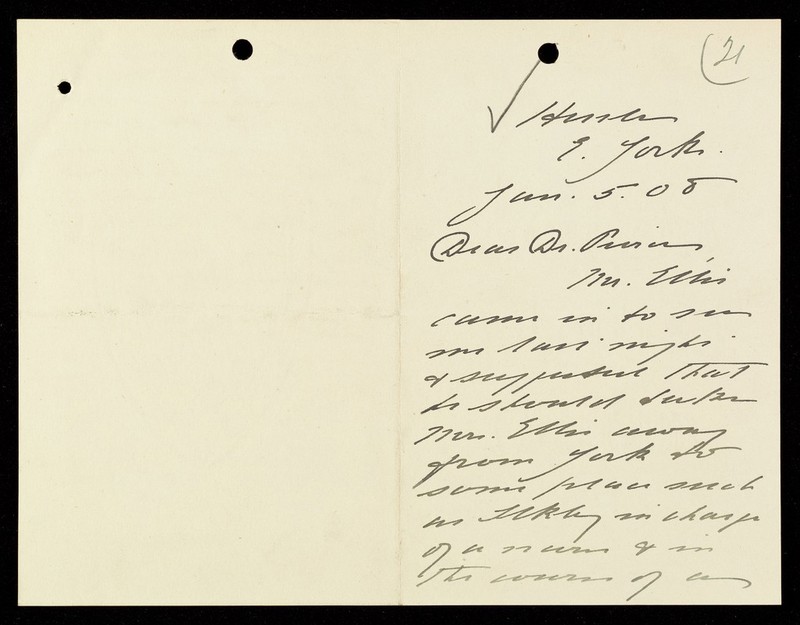 21
E. York.
Jan. 5. 08
Dear Dr. Pierce,
Mr. Ellis
came in to see
me last night
& suggested that
he should take
Mrs. Ellis away
from York to
some place such
as Ilkley in charge
of a nurse & in
the course of a